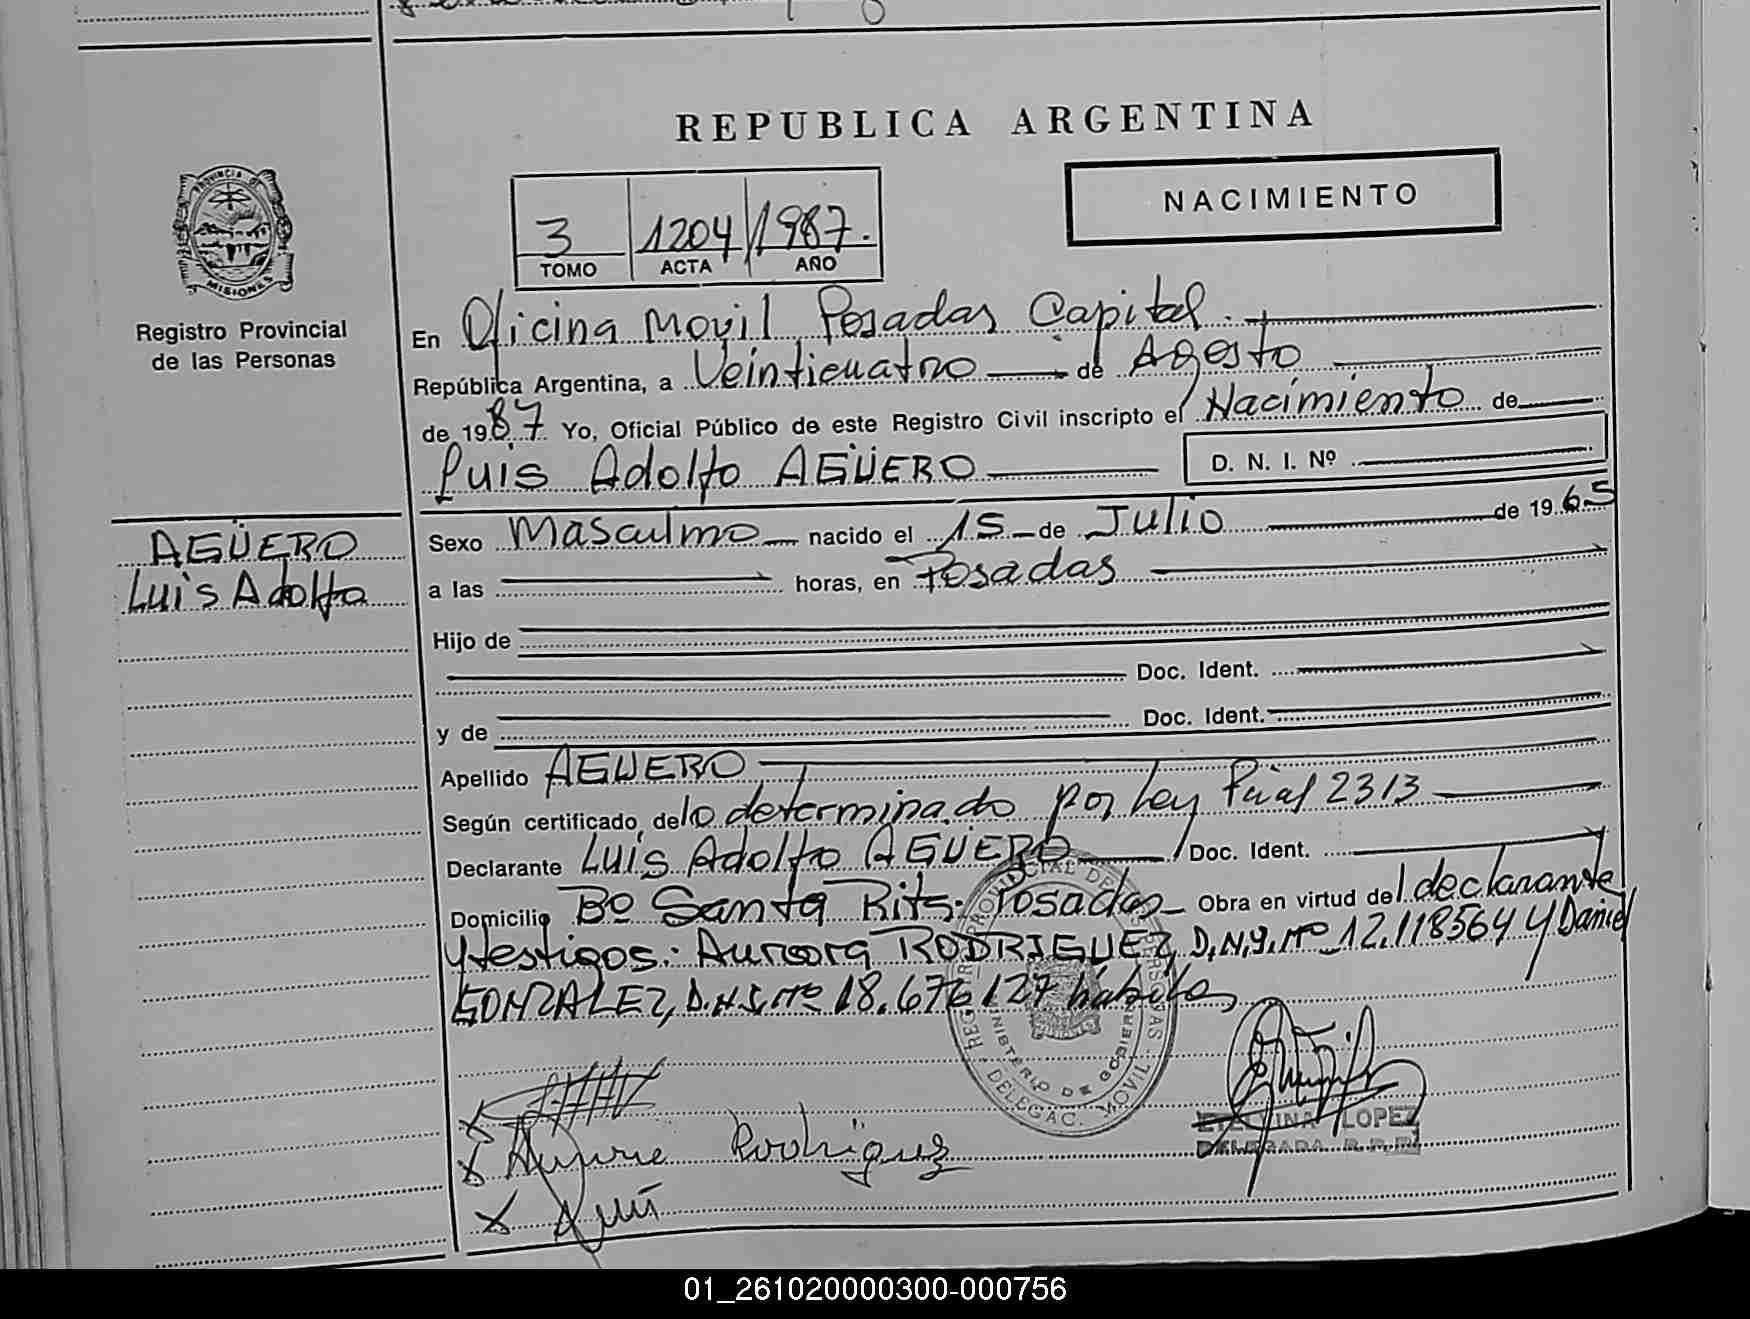 REPUBLICA ARGENTINA
PROVINCIA DE
MISIONES
Registro Provincial
de las Personas
NACIMIENTO
3 1204 1987.
TOMO ACTA AÑO
En Oficina Movil Posadas Capital.
República Argentina, a Veinticuatro de Agosto
de 1987 Yo, Oficial Público de este Registro Civil inscripto el Nacimiento de
Luis Adolfo AGÜERO D. N. I. Nº
AGÜERO
Luis Adolfo
Sexo Masculino nacido el 15 de Julio de 1965
a las horas, en Posadas
Hijo de
Doc. Ident.
y de Doc. Ident.
Apellido AGUERO
Según certificado de lo determinado por Ley Pcial 2313
Declarante Luis Adolfo AGÜERO Doc. Ident.
Domicilio Bo Santa Rita. Posadas Obra en virtud del declarante
y testigos: Aurora RODRIGUEZ, D.N.I. Nº 12.118564 y Daniel
GONZALEZ, D.N.I. Nº 18.676127 hábiles
REGISTRO PROVINCIAL DE LAS PERSONAS
MINISTERIO DE GOBIERNO
DELEGAC. MOVIL
Rodriguez
ETELVINA LOPEZ
DELEGADA R.P.P.
01_261020000300-000756